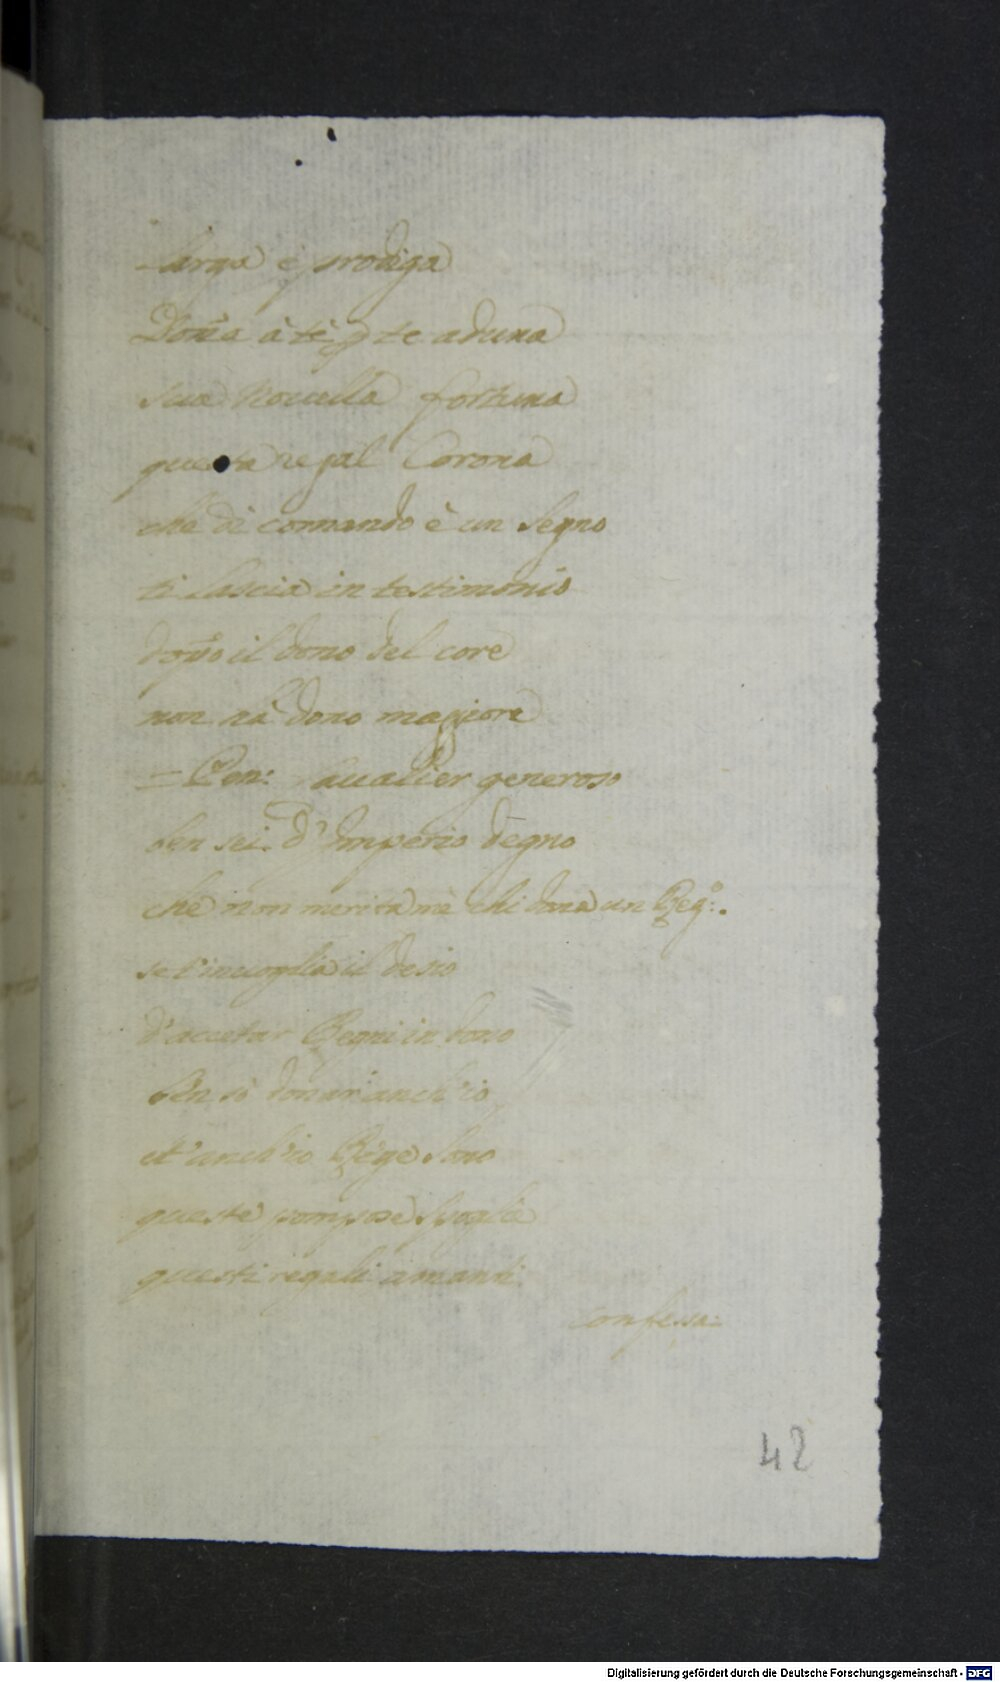 larga è prodiga
Dona à tè p te aduna
sua nouella fortuna
questa regal Corona
che di comando è un segno
ti lascia in testimonio
dopo il dono del core
non hà dono maggiore
= Pen: Caualier generoso
ben sei d'Imperio degno
che non merita mè chi dona un Regº:.
se t'inuoglia il desio
d'accetar Regni in dono
ben sò donar anch'io
et anch'io Rege sono
queste pompose spoglie
questi regali amanti
confessa:
42
Digitalisierung gefördert durch die Deutsche Forschungsgemeinschaft - DFG